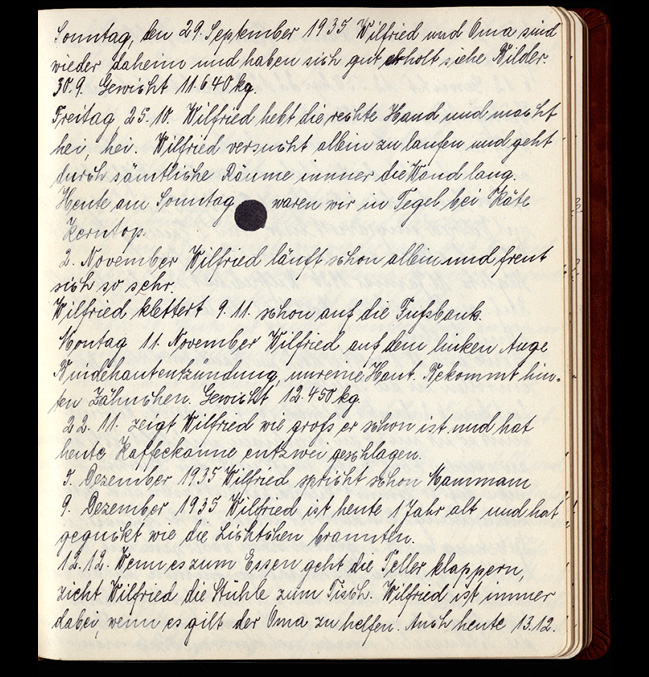 Sonntag, den 29. September 1935 Wilfried und Oma sind
wieder daheim und haben sich gut erholt siehe Bilder.
30.9. Gewicht 11.640 kg.
Freitag 25.10. Wilfried hebt die rechte Hand und macht
hei, hei. Wilfried versucht allein zu laufen und geht
durch sämtliche Räume immer die Wand lang.
Heute am Sonntag waren wir in Tegel bei Käte
Kerntop.
2. November Wilfried läuft schon allein und freut
sich so sehr.
Wilfried klettert 9.11. schon auf die Fußbank
Montag 11. November Wilfried auf dem linken Auge
Bindehautentzündung, unreine Haut. Bekommt hin-
ten Zähnchen. Gewicht 12.450 kg
22.11. zeigt Wilfried wie groß er schon ist und hat
heute Kaffeekanne entzwei geschlagen.
5. Dezember 1935 Wilfried spricht schon Mammam
9. Dezember 1935 Wilfried ist heute 1 Jahr alt und hat
geguckt wie die Lichtchen brannten.
12.12. Wenn es zum Essen geht die Teller klappern,
zieht Wilfried die Stühle zum Tisch. Wilfried ist immer
dabei, wenn es gilt der Oma zu helfen. Auch heute 13.12.